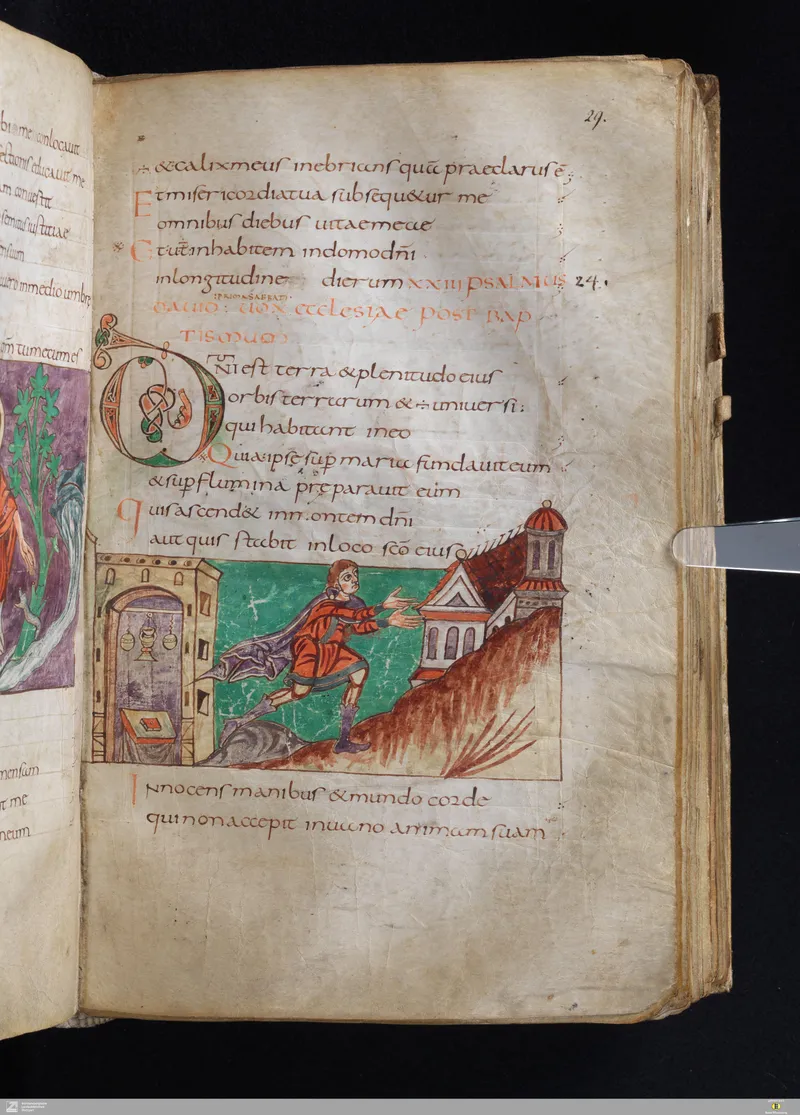 bi me conlocauit
educauit me
conuertit
semitas iustitiae
suum
inmedio umbre
tu mecum es
mensam
me
meum
29.
÷ & calix meus inebrians quā praeclarus ē:
Et misericordia tua subsequ&ur me
omnibus diebus uitae meae
Et ut inhabitem indomo dn̄i
inlongitudine dierum XXIII PSALMUS 24.
PRIMA SABBATI
DAUID: UOX ECCLESIAE POST BAP
TISMUM
DN̄I est terra & plenitudo eius
orbis terrarum & ÷ uniuersi:
qui habitant ineo
Quia ipse sup maria fundauit eum
& sup flumina pręparauit eum
Quis ascend& inmontem dn̄i
aut quis stabit inloco scō eius
Innocens manibus & mundo corde
qui non accepit inuano animam suam